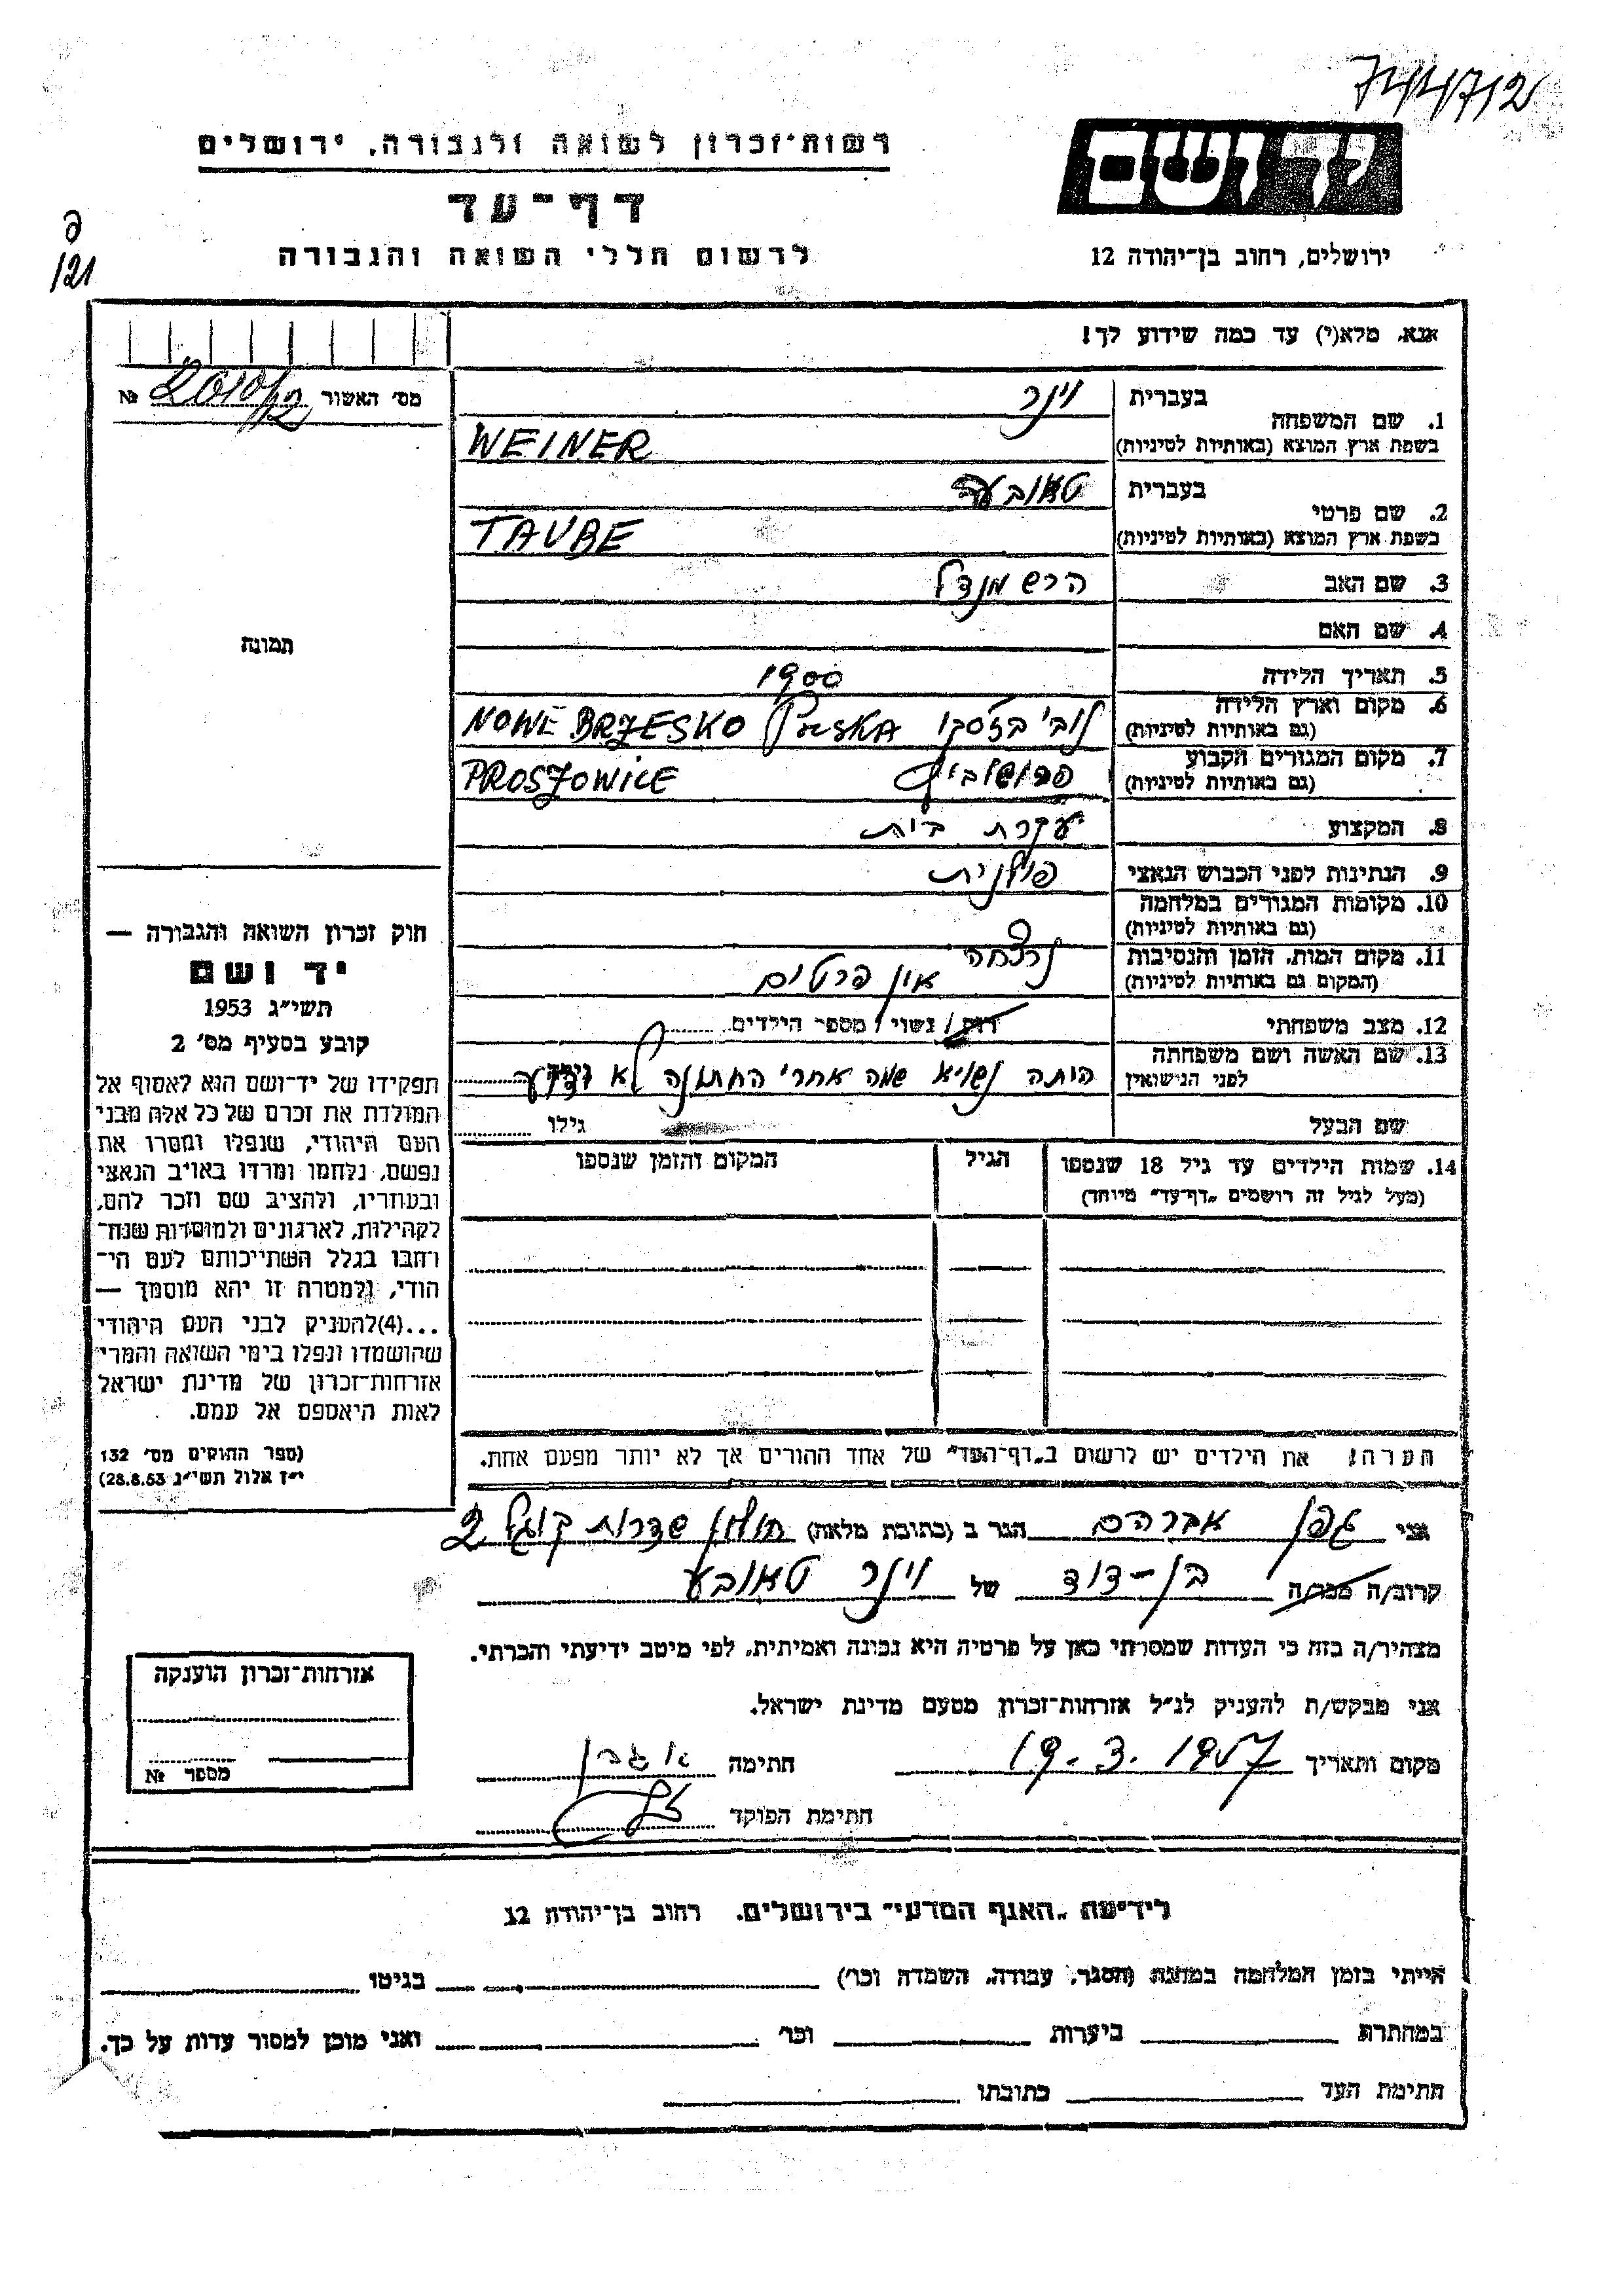 744712
רשות־זכרון לשואה ולגבורה, ירושלים
יד ושם
דף־עד
לרשום חללי השואה והגבורה
ירושלים, רחוב בן־יהודה 12
121
אנא, מלא(י) עד כמה שידוע לך!
מס' האשור 2010/12 №
1. שם המשפחה בעברית וינר
בשפת ארץ המוצא (באותיות לטיניות) WEINER
2. שם פרטי בעברית טאובע
בשפת ארץ המוצא (באותיות לטיניות) TAUBE
3. שם האב הרש מנדל
4. שם האם
תמונה
5. תאריך הלידה 1900
6. מקום וארץ הלידה (גם באותיות לטיניות) נובי בז'סקו POLSKA NOWE BRZESKO
7. מקום המגורים הקבוע (גם באותיות לטיניות) פרושוביץ PROSZOWICE
8. המקצוע עקרת בית
9. הנתינות לפני הכבוש הנאצי פולנית
10. מקומות המגורים במלחמה (גם באותיות לטיניות)
11. מקום המות, הזמן והנסיבות (המקום גם באותיות לטיניות) נרצחה
אין פרטים
12. מצב משפחתי רווק / נשוי / מספר הילדים
13. שם האשה ושם משפחתה לפני הנישואין גילה
היתה נשויא שמה אחרי החתונה לא ידוע
שם הבעל גילו
14. שמות הילדים עד גיל 18 שנספו הגיל המקום והזמן שנספו
(מעל לגיל זה רושמים „דף־עד" מיוחד)
חוק זכרון השואה והגבורה —
יד ושם
תשי"ג 1953
קובע בסעיף מס' 2
תפקידו של יד־ושם הוא לאסוף אל
המולדת את זכרם של כל אלה מבני
העם היהודי, שנפלו ומסרו את
נפשם, נלחמו ומרדו באויב הנאצי
ובעוזריו, ולהציב שם וזכר להם,
לקהילות, לארגונים ולמוסדות שנח־
רחבו בגלל השתייכותם לעם הי־
הודי, ולמטרה זו יהא מוסמך —
...(4)להעניק לבני העם היהודי
שהושמדו ונפלו בימי השואה והמרי
אזרחות־זכרון של מדינת ישראל
לאות היאספם אל עמם.
(ספר החוקים מס' 132
י"ז אלול תשי"ג 28.8.53)
הערה: את הילדים יש לרשום ב„דף־העד" של אחד ההורים אך לא יותר מפעם אחת.
אני גפן אברהם הגר ב (כתובת מלאה) חולון שדרות קוגל 2
קרוב/ה מכר/ה בן-דוד של וינר טאובע
מצהיר/ה בזה כי העדות שמסרתי כאן על פרטיה היא נכונה ואמיתית, לפי מיטב ידיעתי והכרתי.
אני מבקש/ת להעניק לנ"ל אזרחות־זכרון מטעם מדינת ישראל.
מקום ותאריך 19.3.1957 חתימה א גפן
חתימת הפוקד
אזרחות־זכרון הוענקה
מספר №
לידיעת „האגף המדעי" בירושלים, רחוב בן־יהודה 12
הייתי בזמן המלחמה במחנה (הסגר, עבודה, השמדה וכו') בגיטו
במחתרת ביערות וכו' ואני מוכן למסור עדות על כך.
חתימת העד כתובתו